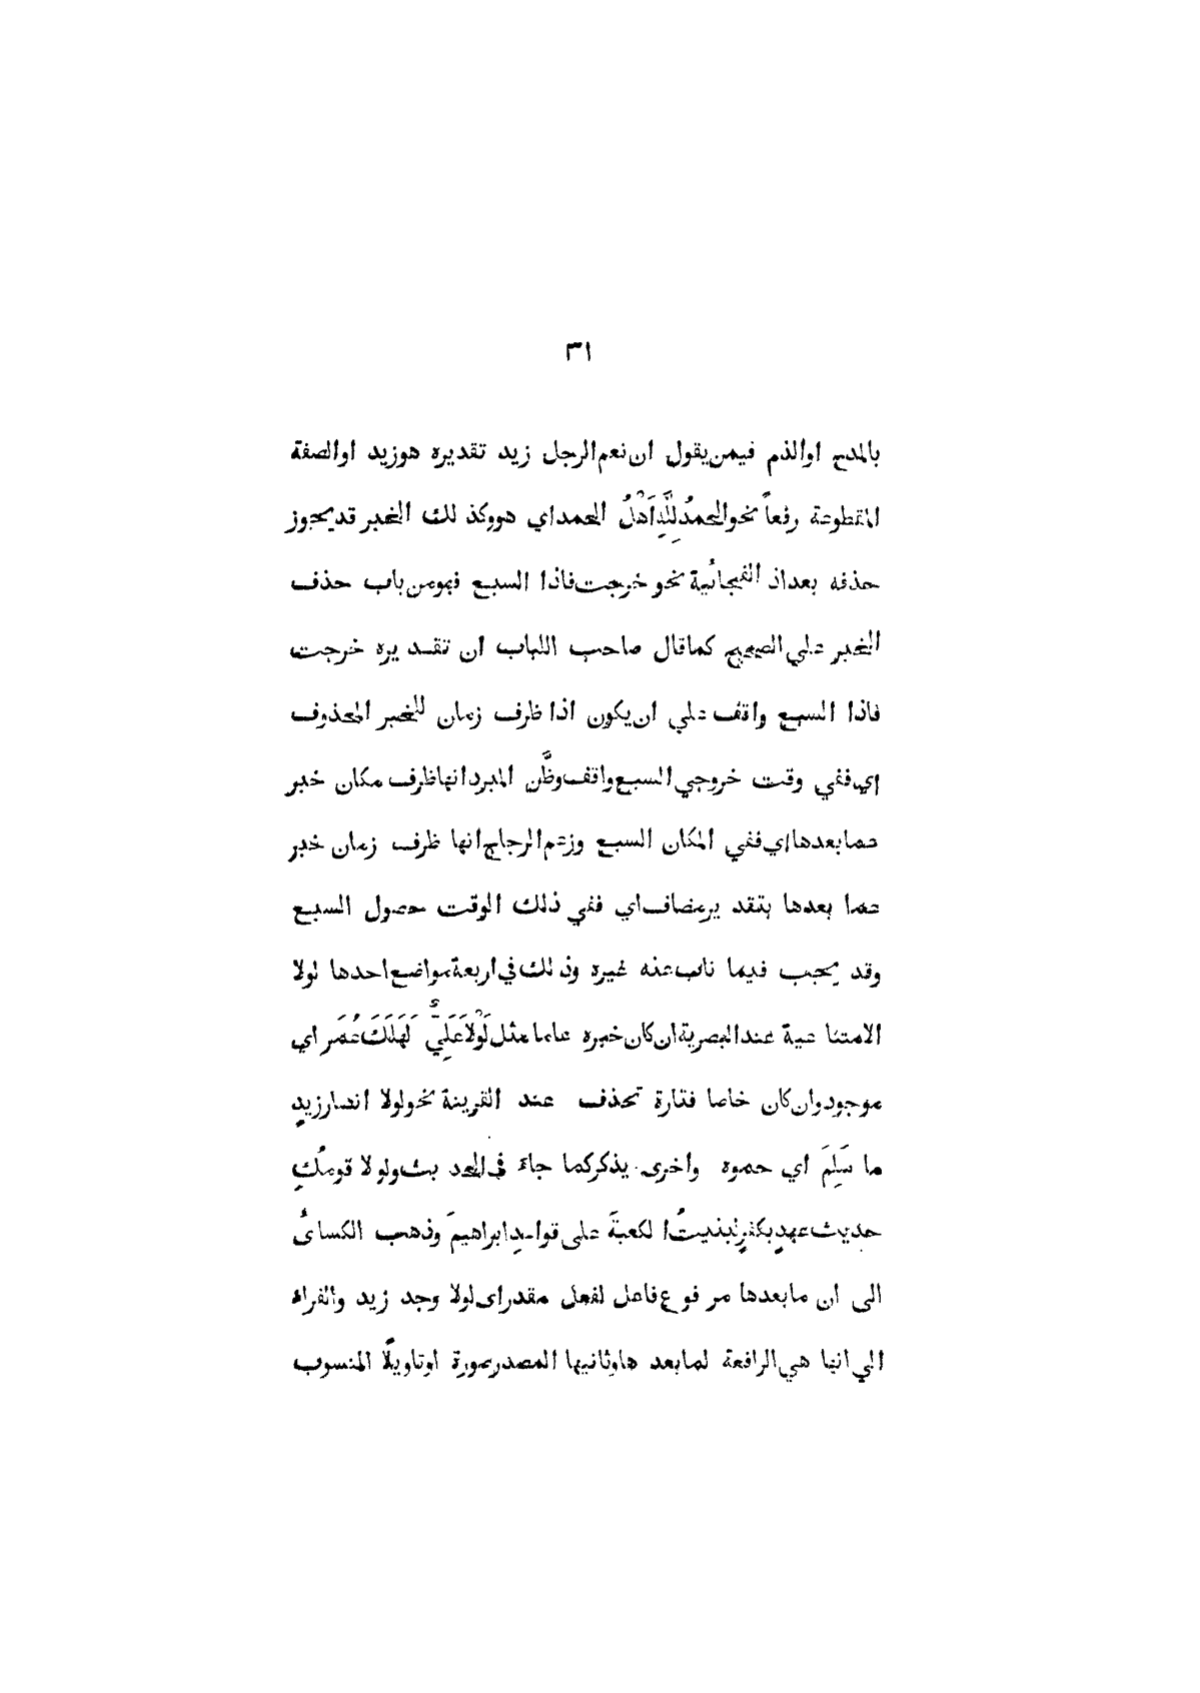 ٣١
بالمدح اوالذم فيمن يقول ان نعم الرجل زيد تقديره هوزيد اوالصفة
المقطوعة رفعاً نحوالحمدُ لِلّٰهِ اَهْلُ الحمداي هووكذ لك الخبر قديجوز
حذفه بعداذ الفجائية نحو خرجت فاذا السبع فهومن باب حذف
الخبر علي الصحيح كماقال صاحب اللباب ان تقد يره خرجت
فاذا السبع واقف علي ان يكون اذا ظرف زمان للخبر المحذوف
اي ففي وقت خروجي السبع واقف وظَّن المبرد انها ظرف مكان خبر
عمابعدها اي ففي المكان السبع وزعم الرجاج انها ظرف زمان خبر
عما بعدها بتقد يرمضاف اي ففي ذلك الوقت حصول السبع
وقد يجب فيما ناب عنه غيره وذ لك في اربعة مواضع احدها لولا
الامتنا عية عندالبصرية ان كان خبره عاما مثل لَوْلَا عَلِيٌّ لَهَلَكَ عُمَر اي
موجود وان كان خاصا فتارة تحذف عند القرينة نحولولا انصارزيد
ما سَلِمَ اي حموه واخرى يذكركما جاء فى الحد يث ولولا قومُكِ
حديث عهدٍ بكفرٍ لبنيتُ ا لكعبةَ على قواعدِ ابراهيمَ وذهب الكسائُ
الى ان مابعدها مر فوع فاعل لفعل مقدراى لولا وجد زيد والفراء
الي انها هي الرافعة لمابعد هاوثانيها المصدرصورة اوتاويلًا المنسوب